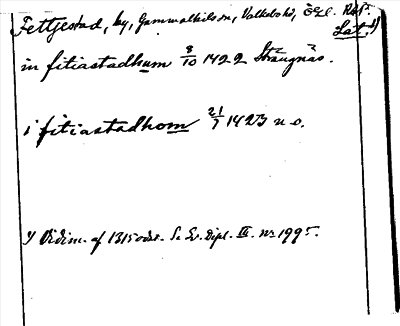 Fettjestad, by, Gammalkils sn, Valkebo hd, Ögl. RAP.
Lat. 1)
in fitiastadhum 8/10 1422 Strängnäs.
i fitiastadhom 21/7 1423 u o.
1) Vidim. af 1315 odat. Se Sv. Dipl. III. nr 1995.